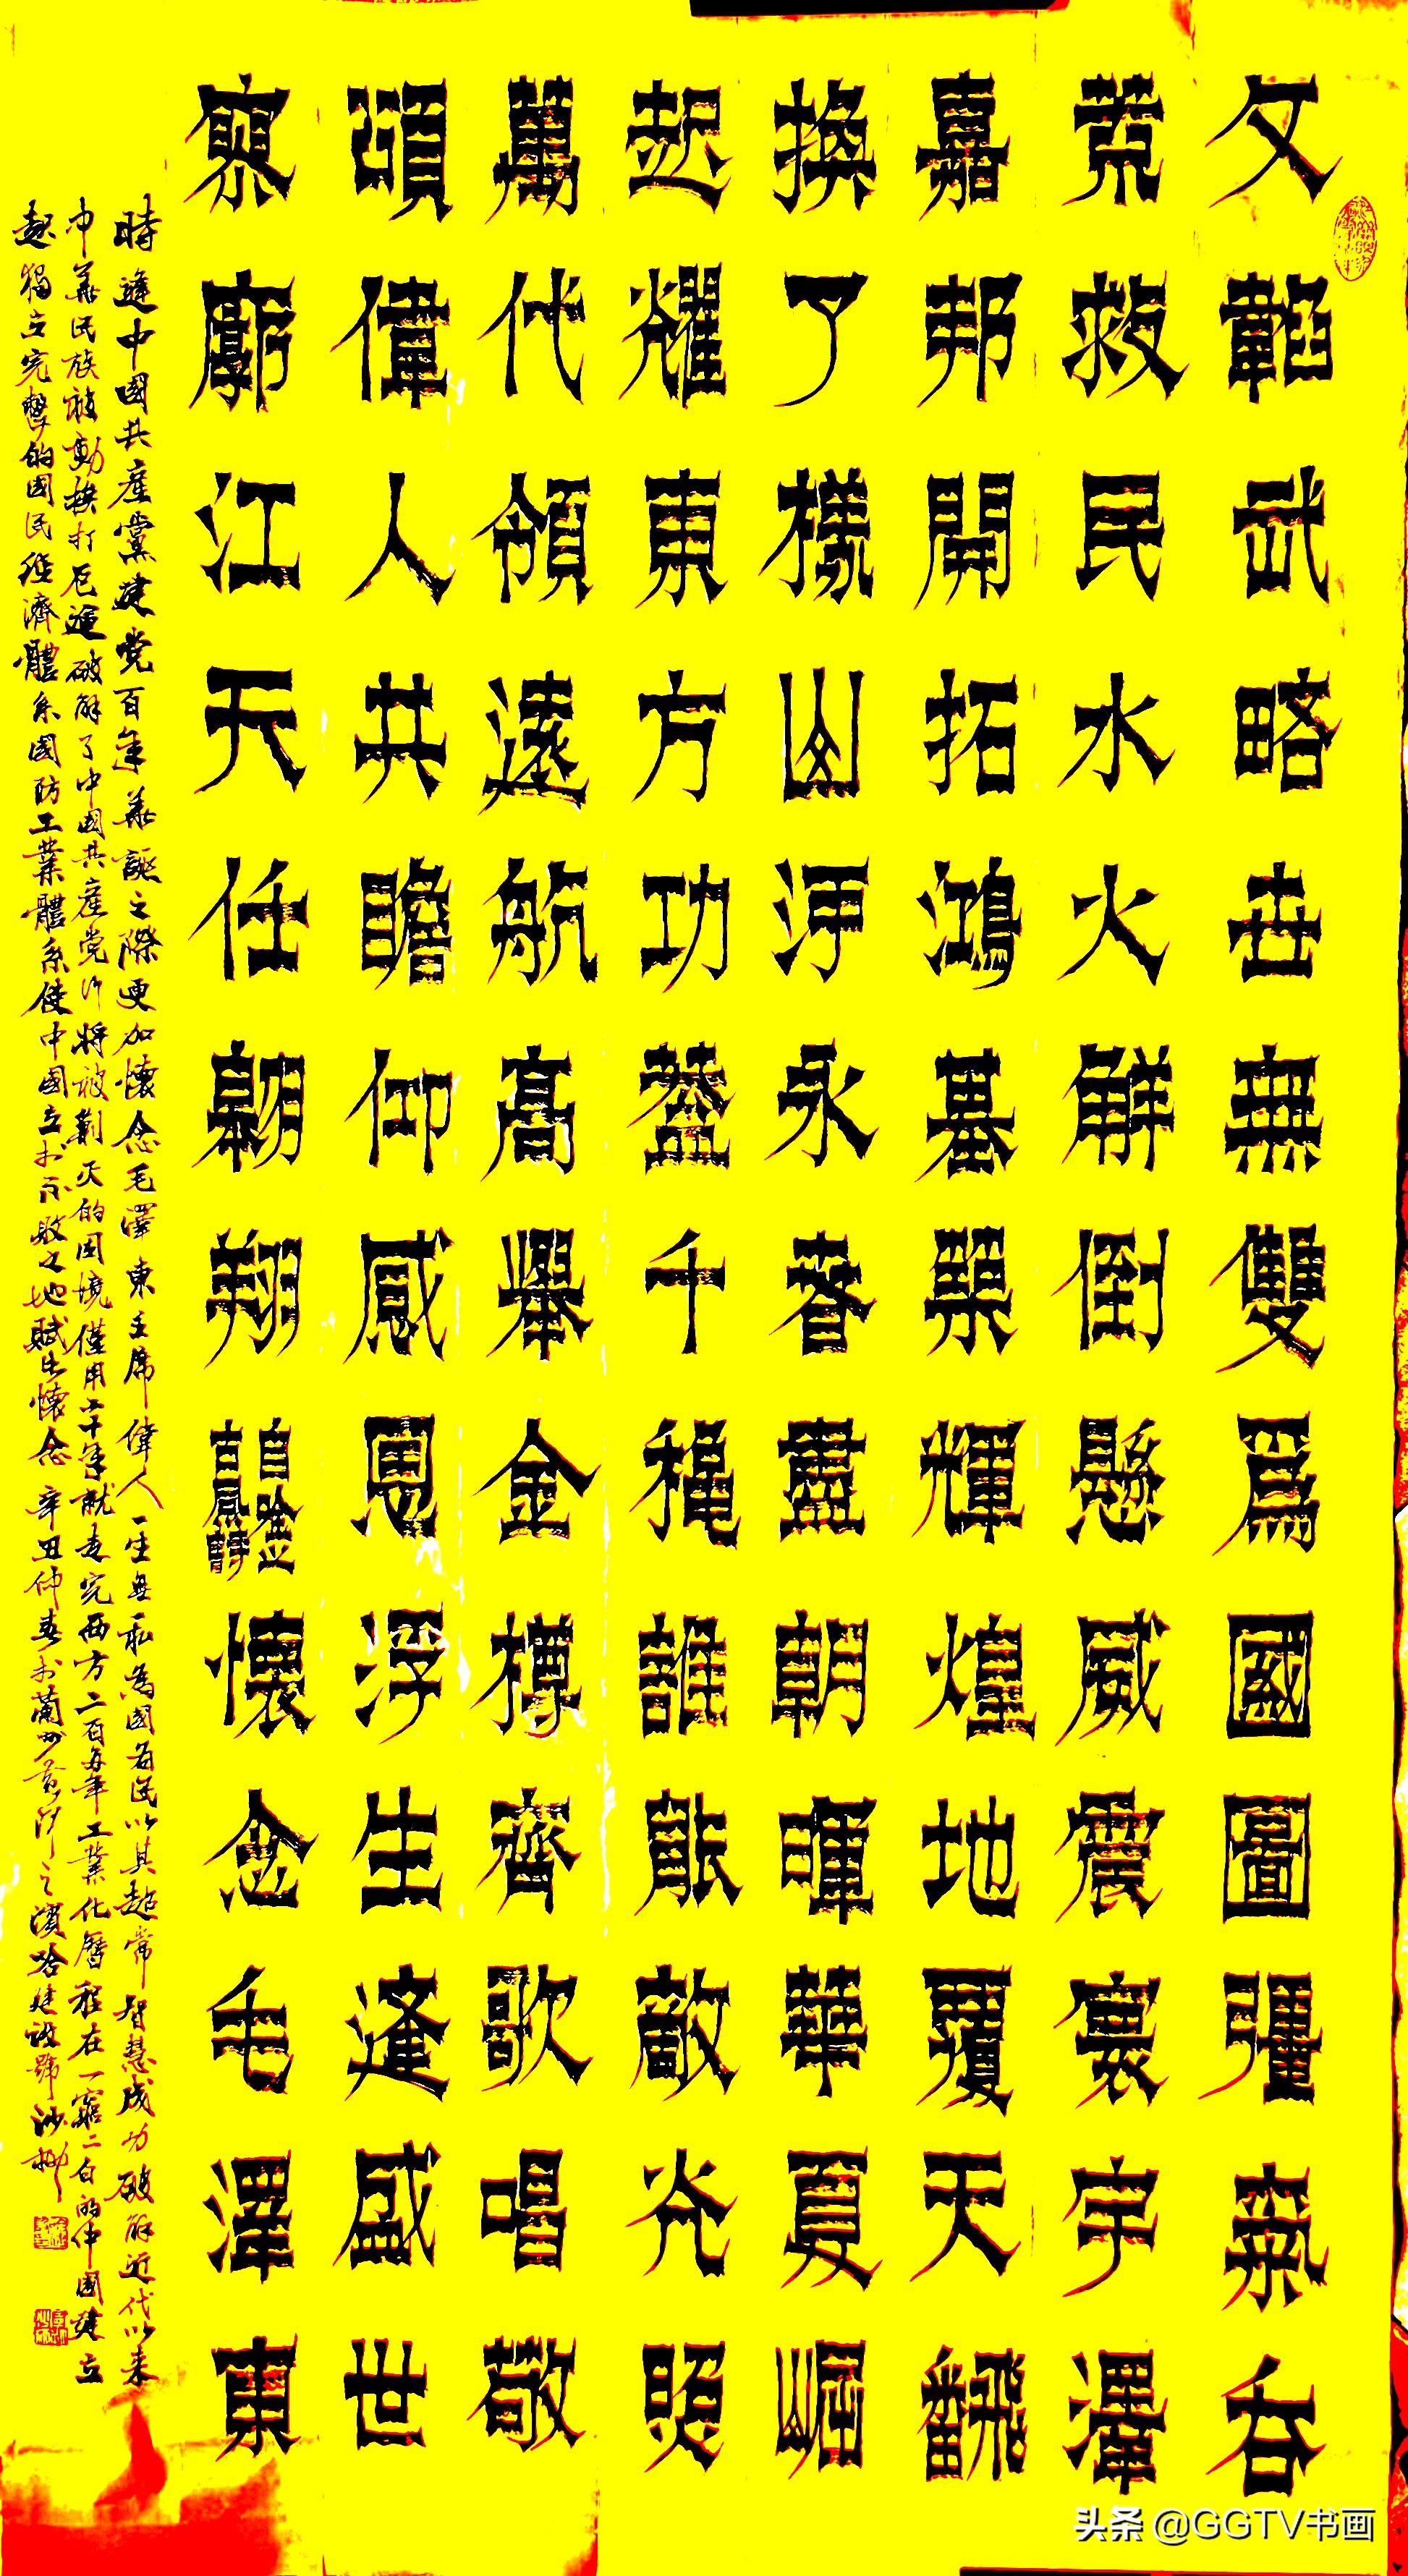 文韜武略世無雙爲國圖彊氣吞
荒救民水火解倒懸威震寰宇澤
嘉邦開拓鴻基業輝煌地覆天翻
換了樣山河永春盡朝暉華夏崛
起耀東方功蓋千龝誰能敵光照
萬代領遠航高舉金樽齊歌唱敬
頌偉人共瞻仰感恩浮生逢盛世
寮廓江天任翱翔懷念毛澤東
時逢中國共産黨建党百年華誕之際更加懷念毛澤東主席偉人一生無私為國為民以其超常智慧成功破解近代以来
中華民族被動挨打厄運破解了中國共産党行将被剿灭的困境僅用二十年就走完西方二百多年工業化曆程在一窮二白的中國建立
起獨立完整的國民經濟體系國防工業體系使中國立於不敗之地賦此懷念 辛丑仲春於蘭州黄河之濱建設號沙柳
头条 @GGTV书画